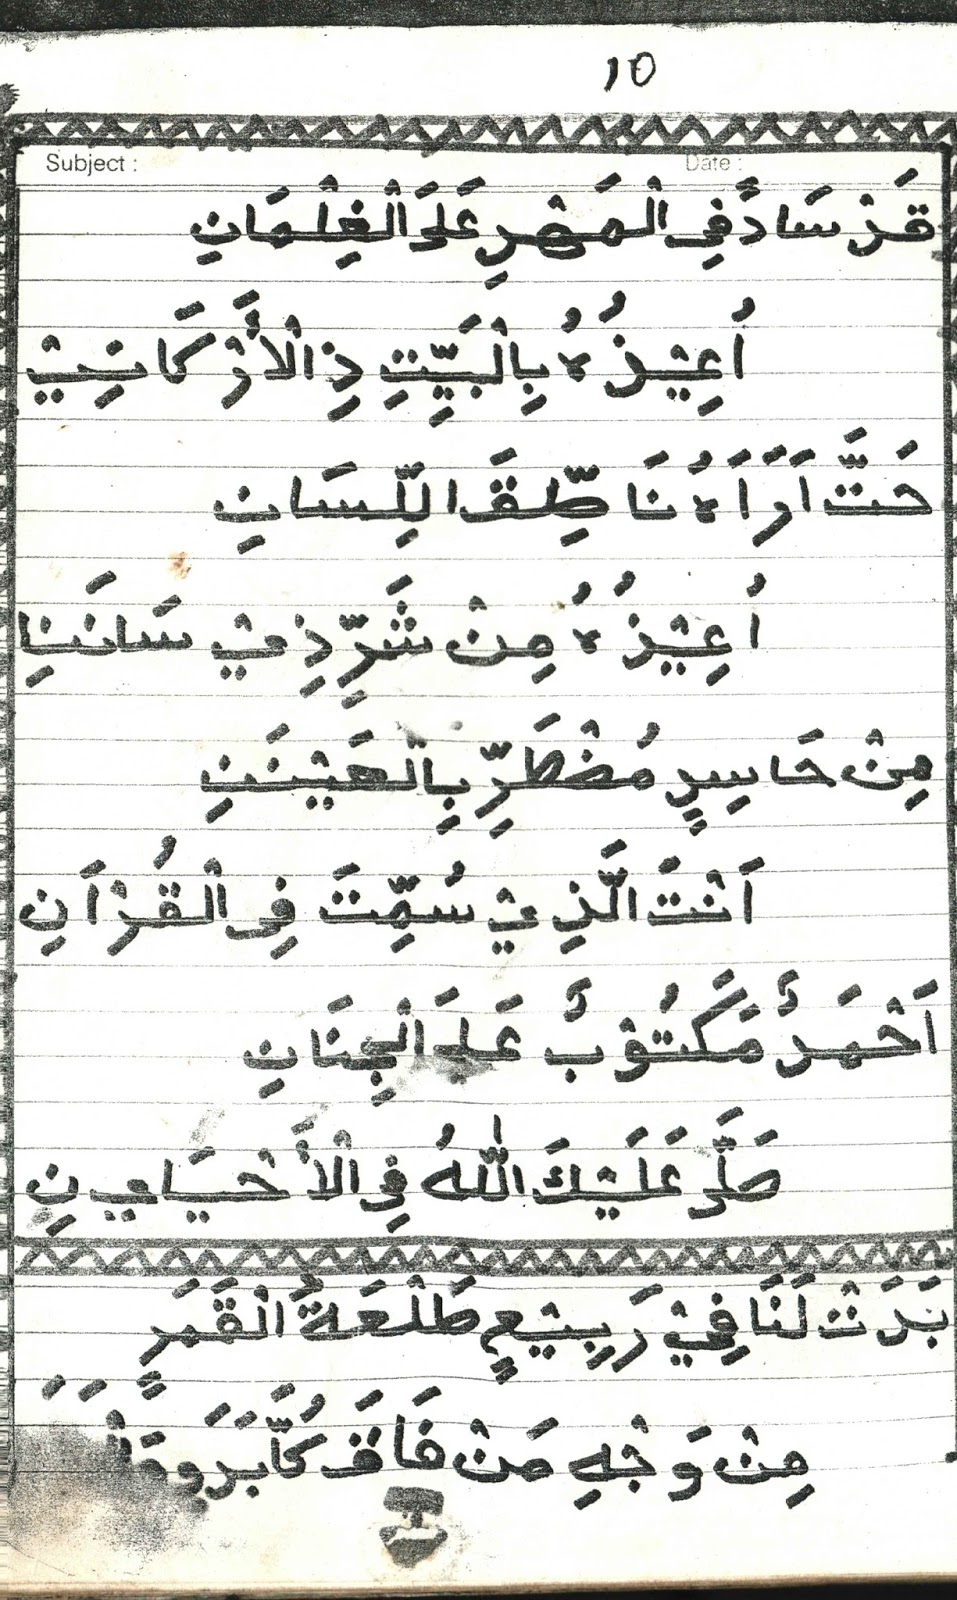 10
Subject : Date :
قَدْ سَادَ فِى الْمَهْدِ عَلَى الْغِلْمَانِ
اُعِيْذُهُ بِالْبَيِّتِ ذِالْأَرْكَانِيْ
حَتَّ اَرَاهُ نَا طِّقَ اللِّسَانِ
اُعِيْذُهُ مِنْ شَرِّذِيْ سَانَنِا
مِنْ حَاسِدٍ مُضْطَرِّ بِالْعَيْنَنِ
اَنْتَ الَّذِيْ سُمِّتَ فِى الْقُرْاَنِ
اَحْمَدُ مَكْتُوْبٌ عَلَى الْجِنَانِ
صَلَّى عَلَيْكَ اللّٰهُ فِى الْأَحْيَايِنِ
بَدَتْ لَنَا فِيْ رَبِيْعٍ طَلْعَةُ الْقَمَرِ
مِنْ وَجْهِ مَنْ فَاقَ كُلَّ